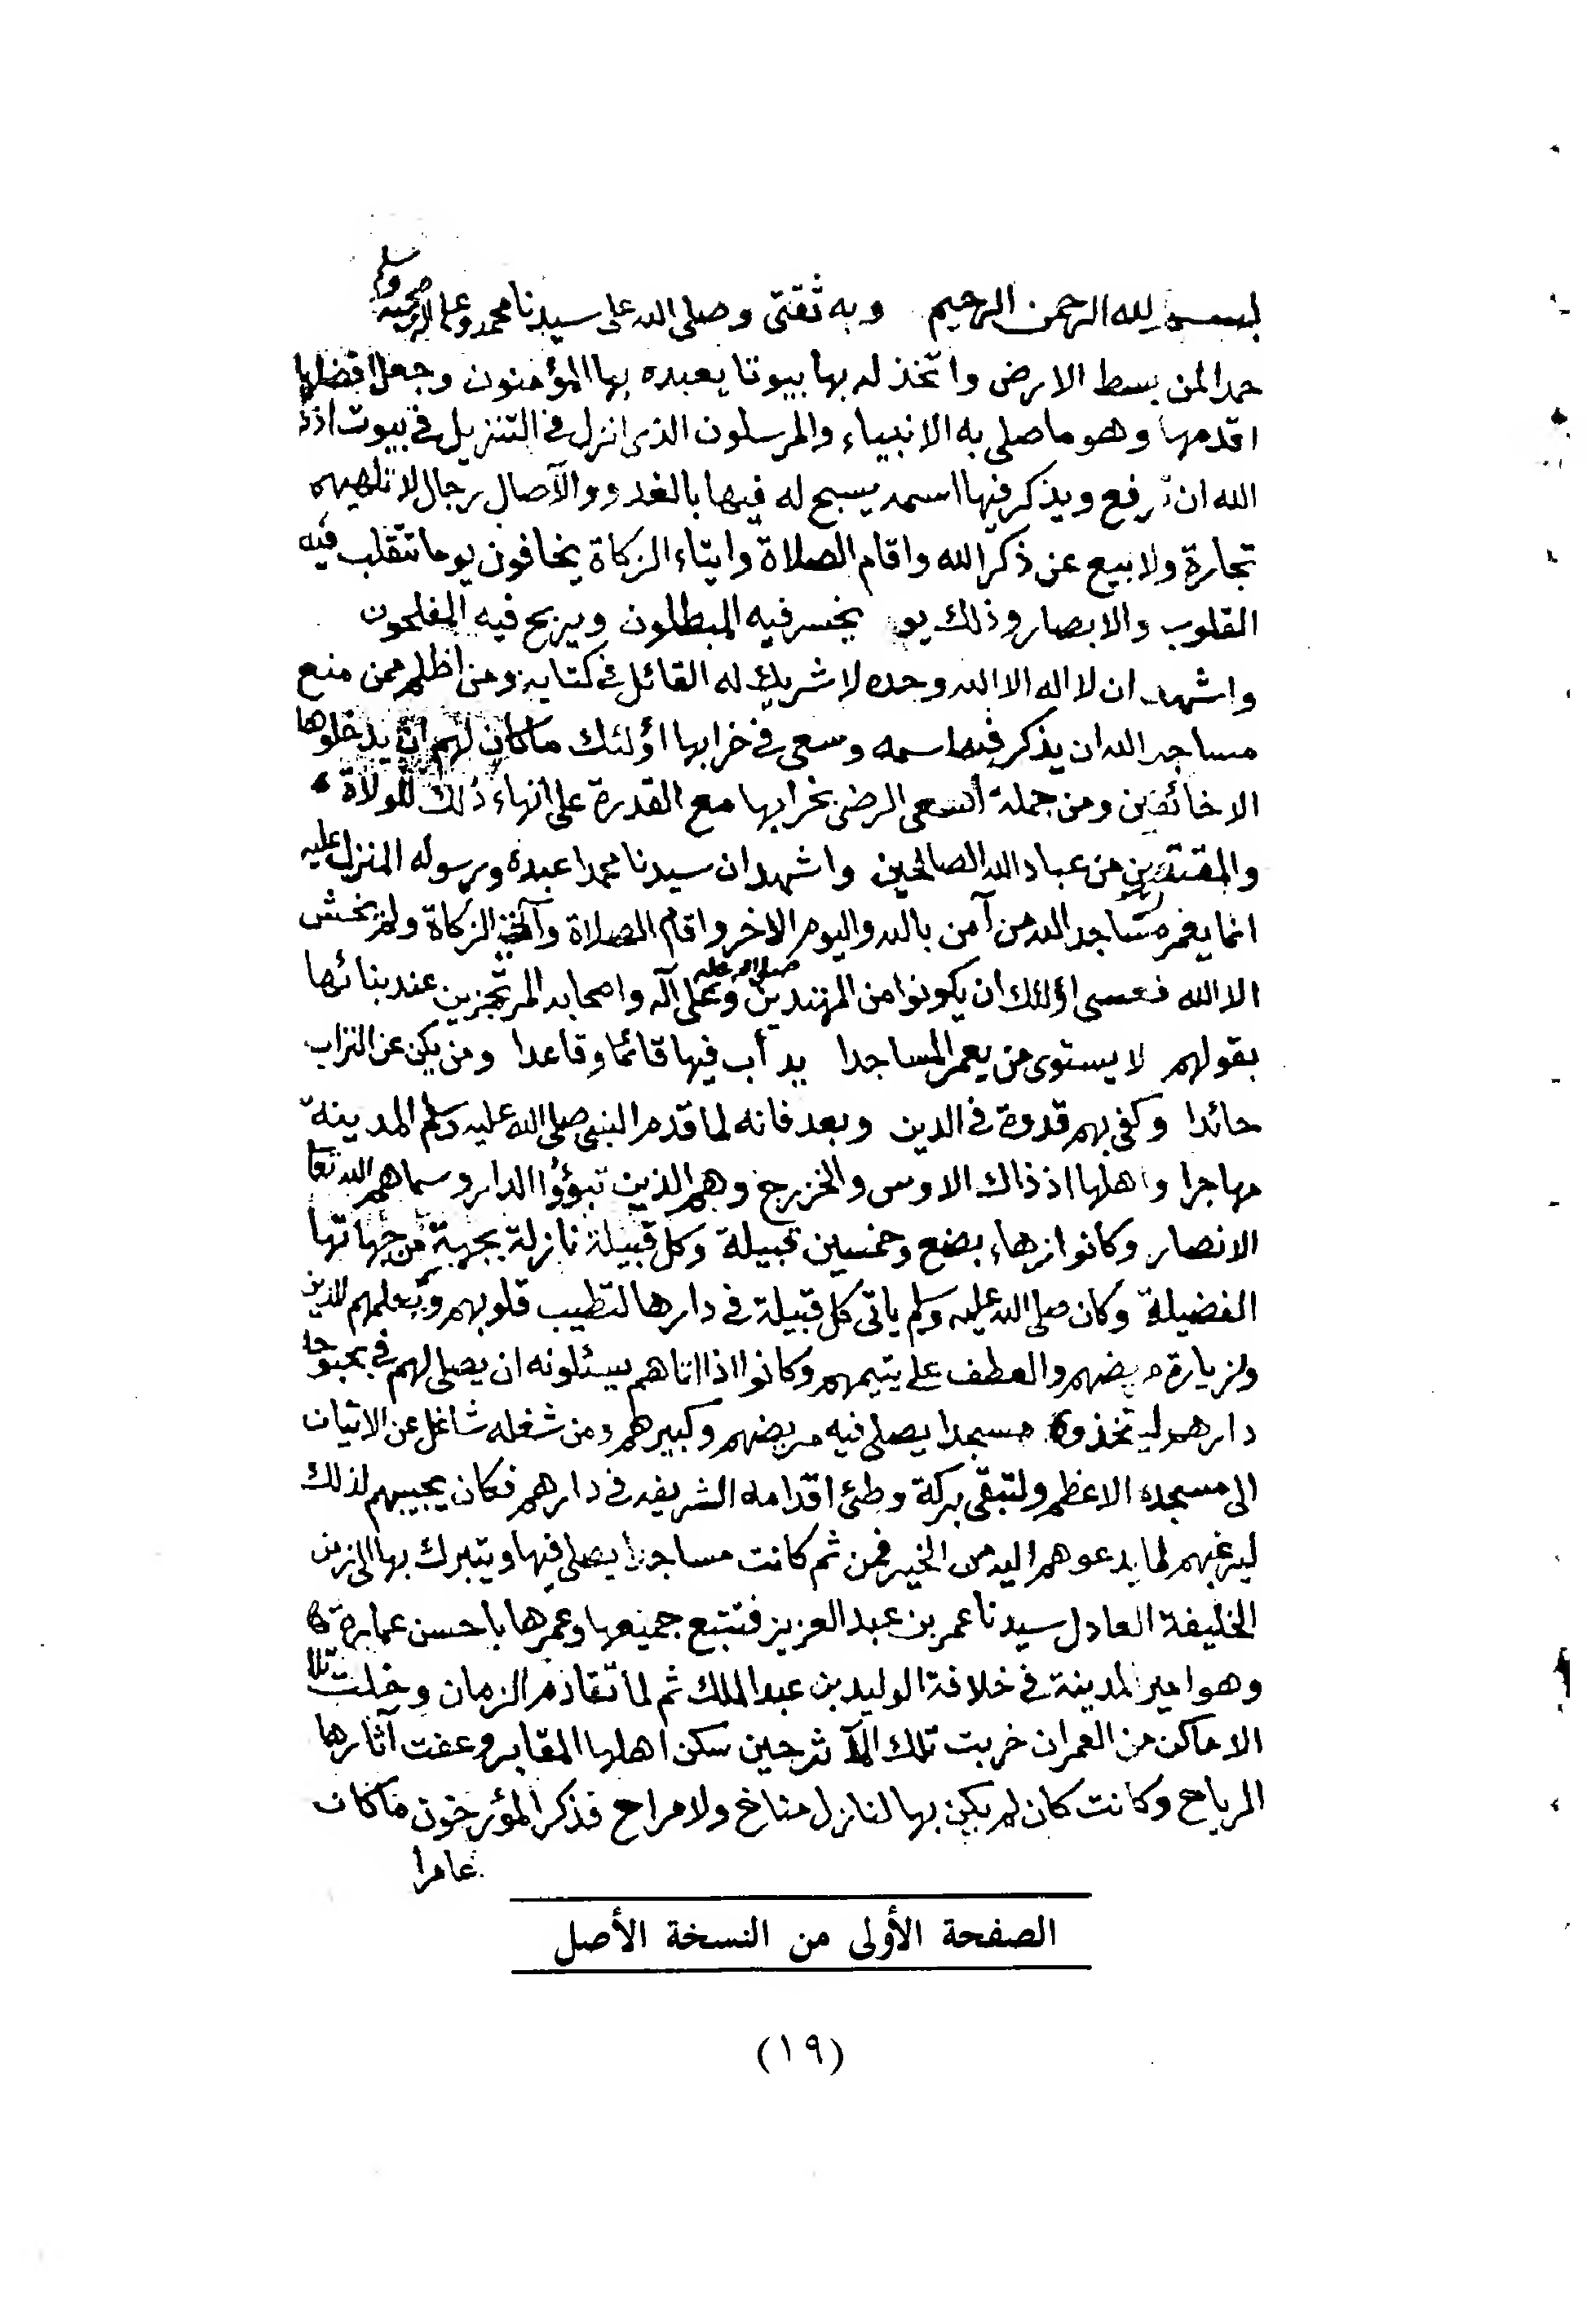 بسم الله الرحمن الرحيم وبه ثقتى وصلى الله على سيدنا محمد وعلى اله وصحبه وسلم
حمدا لمن بسط الارض واتخذ له بها بيوتا يعبده بها المؤمنون وجعل افضلها
اقدمها وهو ما صلى به الانبياء والمرسلون الذى انزل فى التنزيل فى بيوت اذن
الله ان ترفع ويذكر فيها اسمه يسبح له فيها بالغدو والآصال رجال لا تلهيهم
تجارة ولا بيع عن ذكر الله واقام الصلاة وايتاء الزكاة يخافون يوما تتقلب فيه
القلوب والابصار وذلك يو يخسر فيه المبطلون ويربح فيه المفلحون
واشهد ان لا اله الا الله وحده لا شريك له القائل فى كتابه ومن اظلم ممن منع
مساجد الله ان يذكر فيها اسمه وسعى فى خرابها اؤلئك ما كان لهم ان يدخلوها
الا خائفين ومن جملة السعى الرضى بخرابها مع القدرة على انهاء ذلك للولاة
والمقتدرين من عباد الله الصالحين واشهد ان سيدنا محمدا عبده ورسوله المنزل عليه
انما يعمر مساجد الله من آمن بالله واليوم الاخر واقام الصلاة وآتى الزكاة ولم يخش
الا الله فعسى اؤلئك ان يكونوا من المهتدين صلى الله عليه وعلى آله واصحابه المرتجزين عند بنائها
بقولهم لا يستوى من يعمر المساجدا يدأب فيها قائما وقاعدا ومن يكن عن التراب
حائدا وكفى بهم قدوة فى الدين وبعد فانه لما قدم النبى صلى الله عليه وسلم المدينة
مهاجرا واهلها اذ ذاك الاوس والخزرج وهم الذين تبوؤا الدار وسماهم الله تعا
الانصار وكانوا زهاء بضع وخمسين قبيلة وكل قبيلة نازلة بجهة من جهاتها
الفضيلة وكان صلى الله عليه وسلم ياتى كل قبيلة فى دارها لتطيب قلوبهم وتعلمهم للدين
ولزيارة مريضهم والعطف على يتيمهم وكانوا اذا اتاهم يسئلونه ان يصلى لهم فى بحبوحة
دارهم ليتخذوه مسجدا يصلى فيه مريضهم وكبيرهم ومن شغله شاغل عن الاتيان
الى مسجده الاعظم ولتبقى بركة وطئ اقدامه الشريفه فى دارهم فكان يجيبهم لذلك
ليرغبهم لما يدعوهم اليه من الخير فمن ثم كانت مساجدا يصلى فيها ويتبرك بها الى زمن
الخليفة العادل سيدنا عمر بن عبد العزيز فتتبع جميعها وعمرها باحسن عمارة
وهو امير المدينة فى خلافة الوليد بن عبد الملك ثم لما تقادم الزمان وخلت تلك
الاماكن من العمران خربت تلك المآثر حين سكن اهلها المقابر وعفت آثارها
الرياح وكانت كان لم يكن بها لنازل مناخ ولا مراح فذكر المؤرخون ما كان
عامرا
الصفحة الأولى من النسخة الأصل
(١٩)